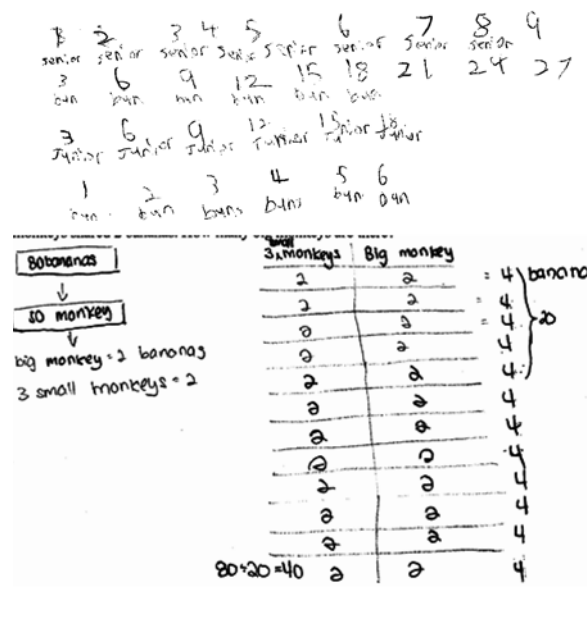 1 2 3 4 5 6 7 8 9
senior senior senior senior senior senior senior senior
3 6 9 12 15 18 21 24 27
bun bun bun bun bun bun
3 6 9 12 15 18
Junior Junior Junior Junior Junior Junior
1 2 3 4 5 6
bun bun buns buns bun bun
80 bananas
50 monkey
big monkey = 2 bananas
3 small monkeys = 2
3 small monkeys Big monkey
2 2 = 4 banana
2 2 = 4
2 2 = 4 20
2 2 4
2 2 4
2 2 4
2 2 4
2 2 4
2 2 4
2 2 4
2 2 4
80÷20=40 2 2 4